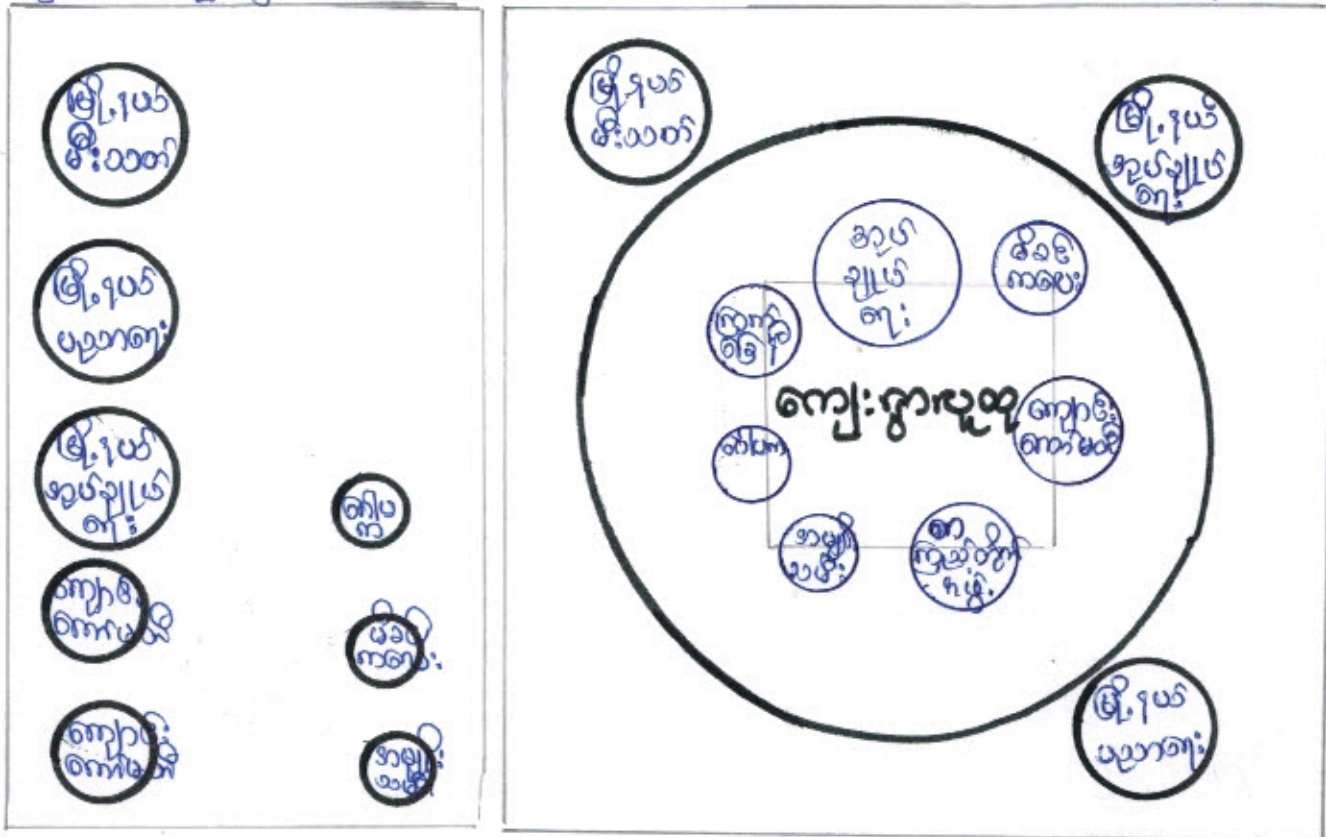 မြို့နယ်
မီးသတ်
မြို့နယ်
ပညာရေး
မြို့နယ်
အုပ်ချုပ်
ရေး
ကျောင်း
ကော်မတီ
ကျောင်း
ကော်မတီ
မိခင်
ကလေး
အမျိုး
သမီး
မြို့နယ်
မီးသတ်
မြို့နယ်
အုပ်ချုပ်
ရေး
အုပ်
ချုပ်
ရေး
မိခင်
ကလေး
ကြက်
ခြေနီ
ကျေးရွာလူထု
ကျောင်း
ကော်မတီ
အမျိုး
သမီး
စာ
ကြည့်တိုက်
မြို့နယ်
ပညာရေး